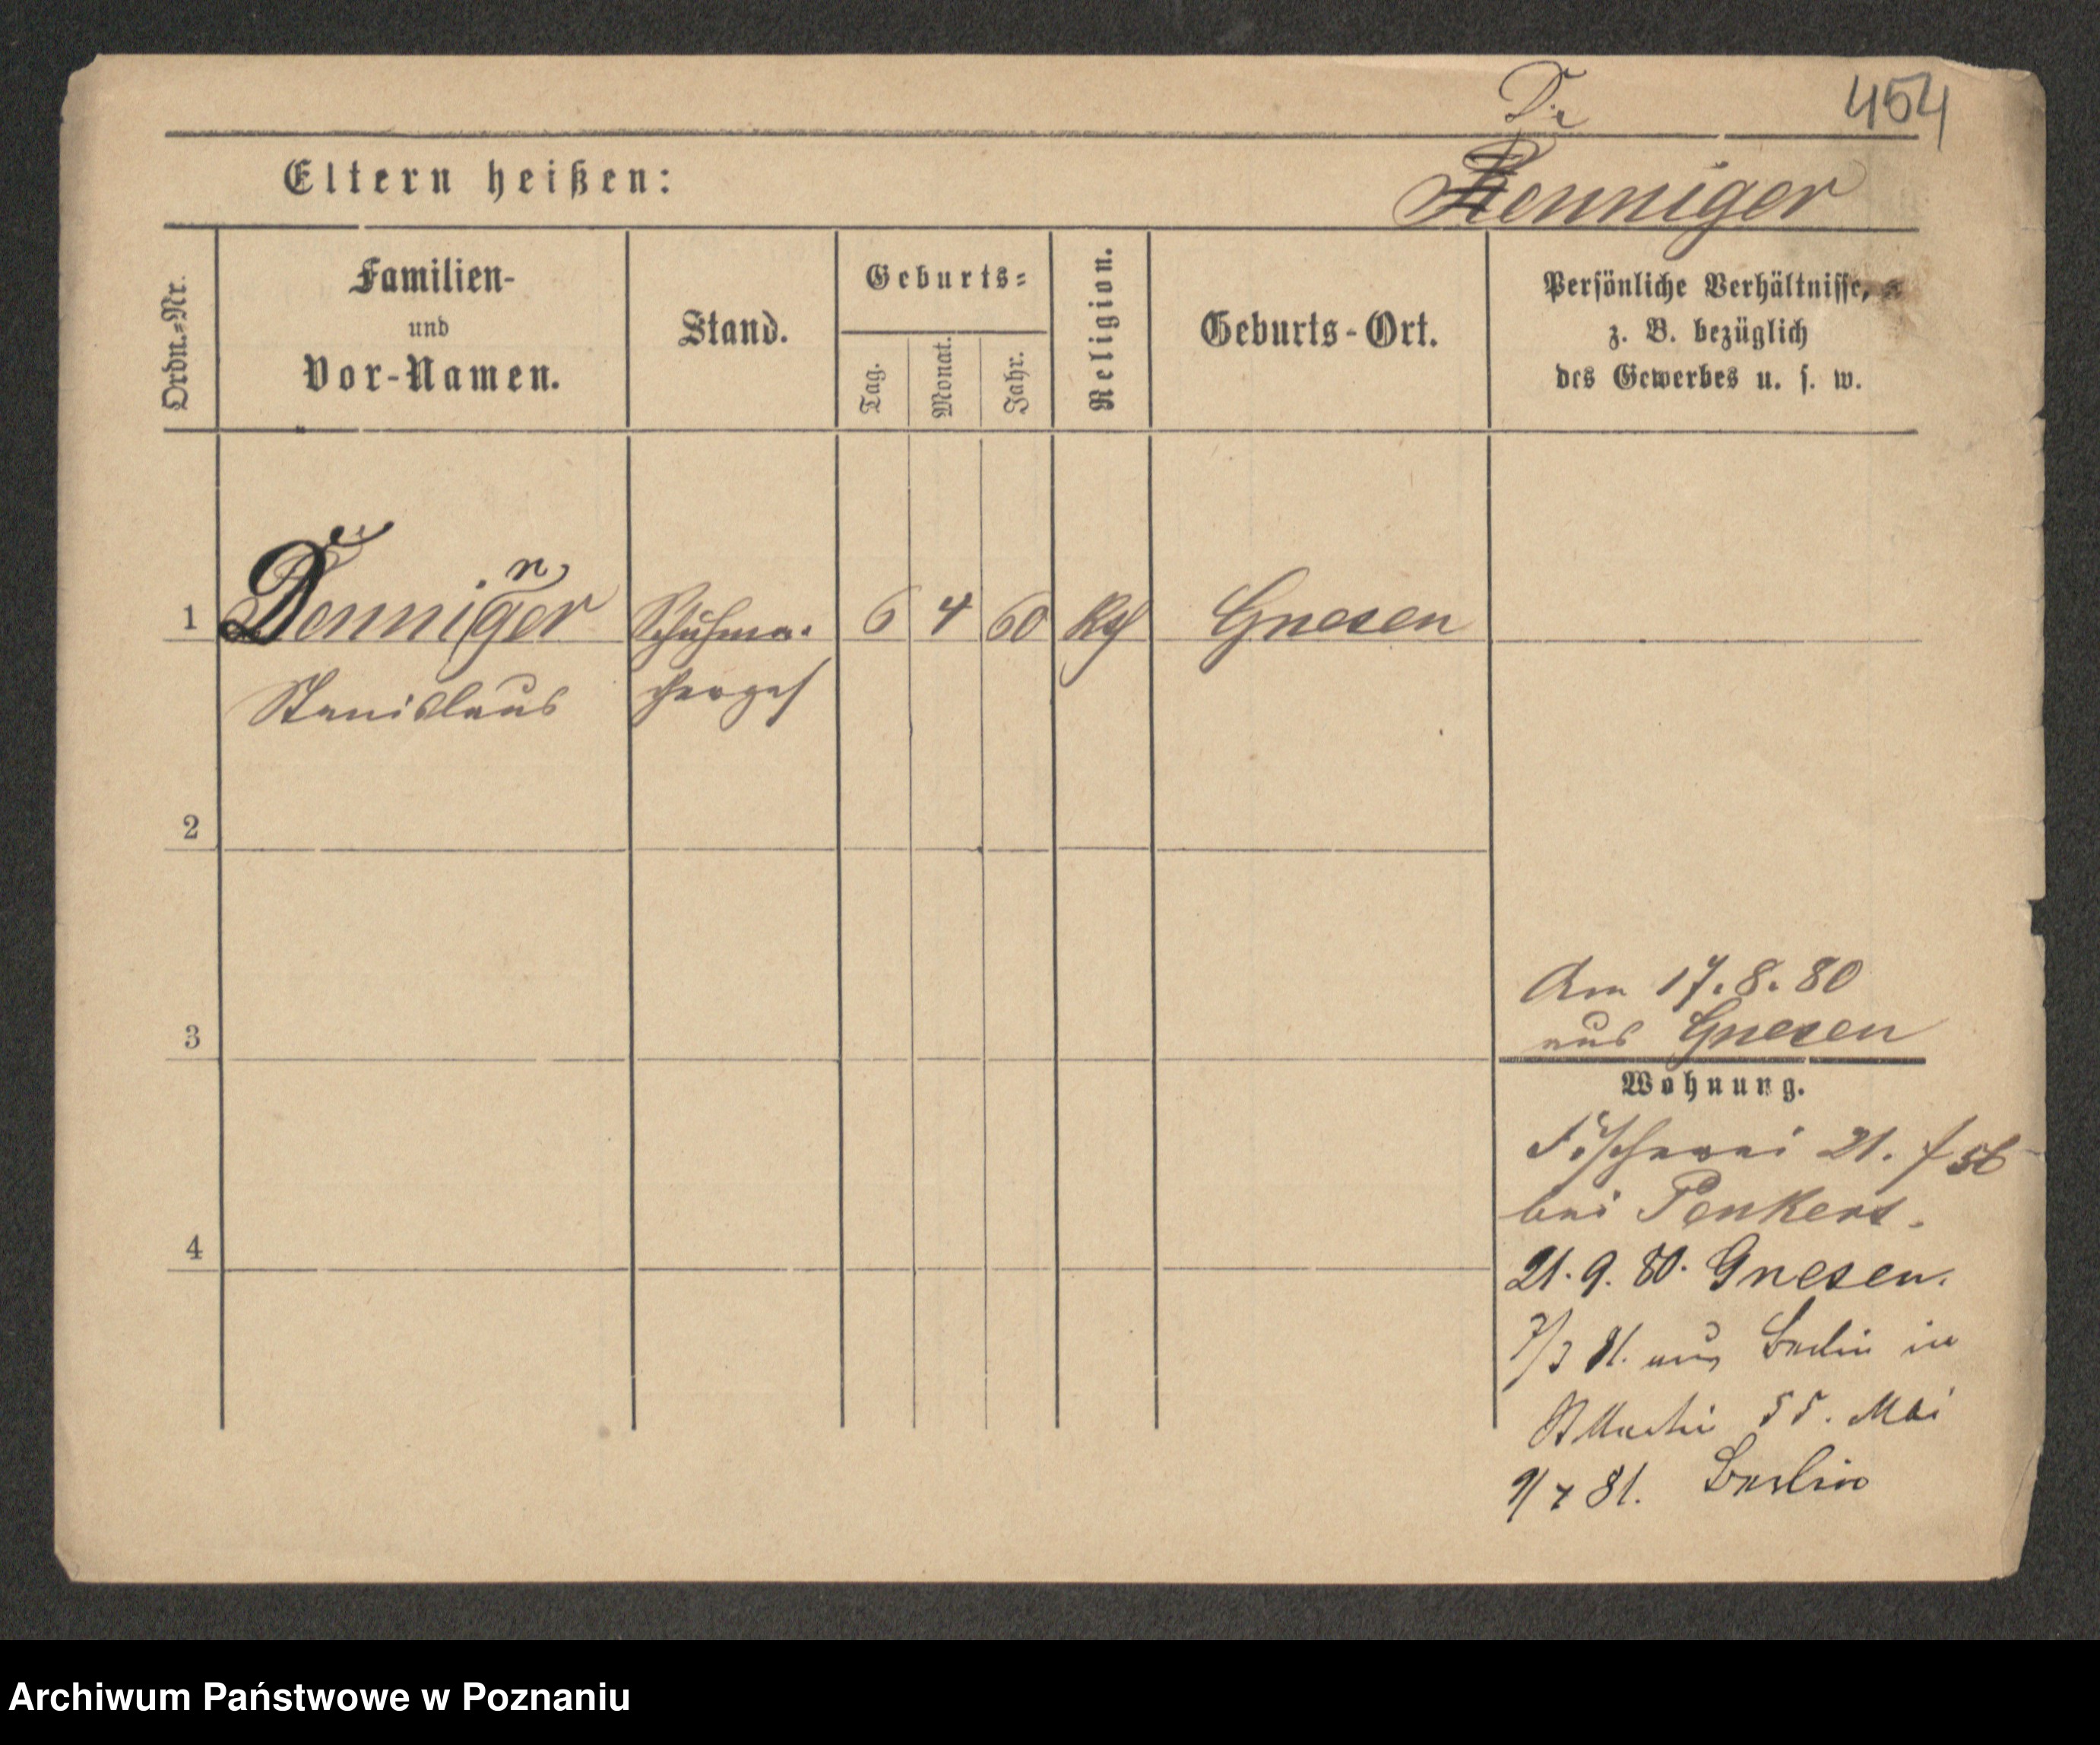 454
De
Denniger
Eltern heißen:
Ordn.=Nr.
Familien-
und
Vor-Namen.
Stand.
Geburts=
Tag.
Monat.
Jahr.
Religion.
Geburts-Ort.
Persönliche Verhältnisse,
z. B. bezüglich
des Gewerbes u. s. w.
n
1 Denniger Schuhma. 6 4 60 Gnesen
Stanislaus cherges
2
3
4
Am 17.8.80
aus Gnesen
Wohnung.
Fischerei 21.
bei Penkert.
21.9.80. Gnesen.
7/3 81. aus Berlin in
St Martin 55. Mai
9/7 81. Berlin
Archiwum Państwowe w Poznaniu